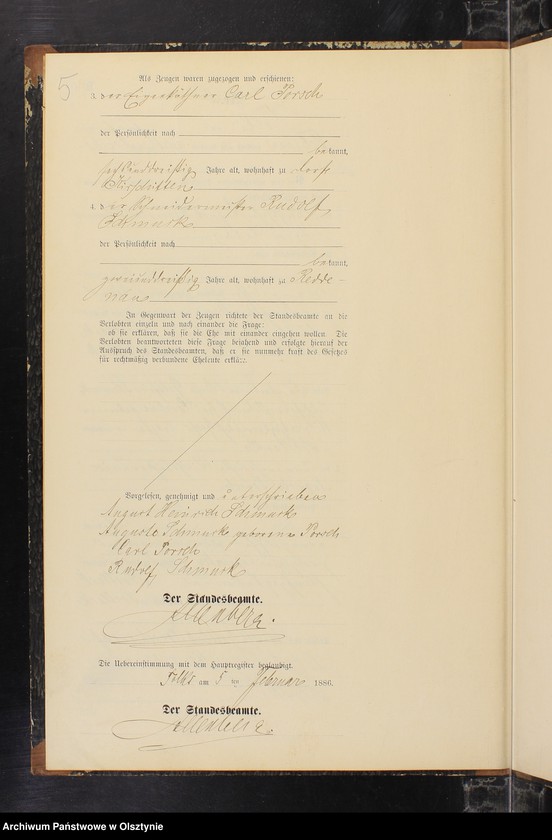 5
Als Zeugen waren zugezogen und erschienen:
3. der Eigenkäthner Carl Porsch
der Persönlichkeit nach
bekannt,
sechsunddreißig Jahre alt, wohnhaft zu Groß
4. der Schneidermeister Rudolf
Schmuck
der Persönlichkeit nach
bekannt,
zweiunddreißig Jahre alt, wohnhaft zu Redde-
nau
In Gegenwart der Zeugen richtete der Standesbeamte an die
Verlobten einzeln und nach einander die Frage:
ob sie erklären, daß sie die Ehe mit einander eingehen wollen. Die
Verlobten beantworteten diese Frage bejahend und erfolgte hierauf der
Ausspruch des Standesbeamten, daß er sie nunmehr kraft des Gesetzes
für rechtmäßig verbundene Eheleute erkläre.
Vorgelesen, genehmigt und unterschrieben
August Heinrich Schmuck
Auguste Schmuck geborene Porsch
Carl Porsch
Rudolf Schmuck
Der Standesbeamte.
Die Uebereinstimmung mit dem Hauptregister beglaubigt.
am 5 ten Februar 1886.
Der Standesbeamte.
Archiwum Państwowe w Olsztynie